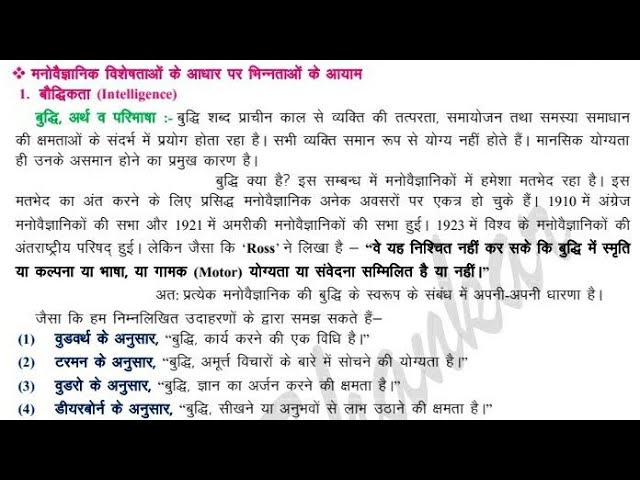 ❖ मनोवैज्ञानिक विशेषताओं के आधार पर भिन्नताओं के आयाम
1. बौद्धिकता (Intelligence)
बुद्धि, अर्थ व परिभाषा :- बुद्धि शब्द प्राचीन काल से व्यक्ति की तत्परता, समायोजन तथा समस्या समाधान
की क्षमताओं के संदर्भ में प्रयोग होता रहा है। सभी व्यक्ति समान रूप से योग्य नहीं होते हैं। मानसिक योग्यता
ही उनके असमान होने का प्रमुख कारण है।
बुद्धि क्या है? इस सम्बन्ध में मनोवैज्ञानिकों में हमेशा मतभेद रहा है। इस
मतभेद का अंत करने के लिए प्रसिद्ध मनोवैज्ञानिक अनेक अवसरों पर एकत्र हो चुके हैं। 1910 में अंग्रेज
मनोवैज्ञानिकों की सभा और 1921 में अमरीकी मनोवैज्ञानिकों की सभा हुई। 1923 में विश्व के मनोवैज्ञानिकों की
अंतराष्ट्रीय परिषद् हुई। लेकिन जैसा कि 'Ross' ने लिखा है – "वे यह निश्चित नहीं कर सके कि बुद्धि में स्मृति
या कल्पना या भाषा, या गामक (Motor) योग्यता या संवेदना सम्मिलित है या नहीं।"
अतः प्रत्येक मनोवैज्ञानिक की बुद्धि के स्वरूप के संबंध में अपनी-अपनी धारणा है।
जैसा कि हम निम्नलिखित उदाहरणों के द्वारा समझ सकते हैं–
(1) वुडवर्थ के अनुसार, "बुद्धि, कार्य करने की एक विधि है।"
(2) टरमन के अनुसार, "बुद्धि, अमूर्त्त विचारों के बारे में सोचने की योग्यता है।"
(3) वुडरो के अनुसार, "बुद्धि, ज्ञान का अर्जन करने की क्षमता है।"
(4) डीयरबोर्न के अनुसार, "बुद्धि, सीखने या अनुभवों से लाभ उठाने की क्षमता है।"